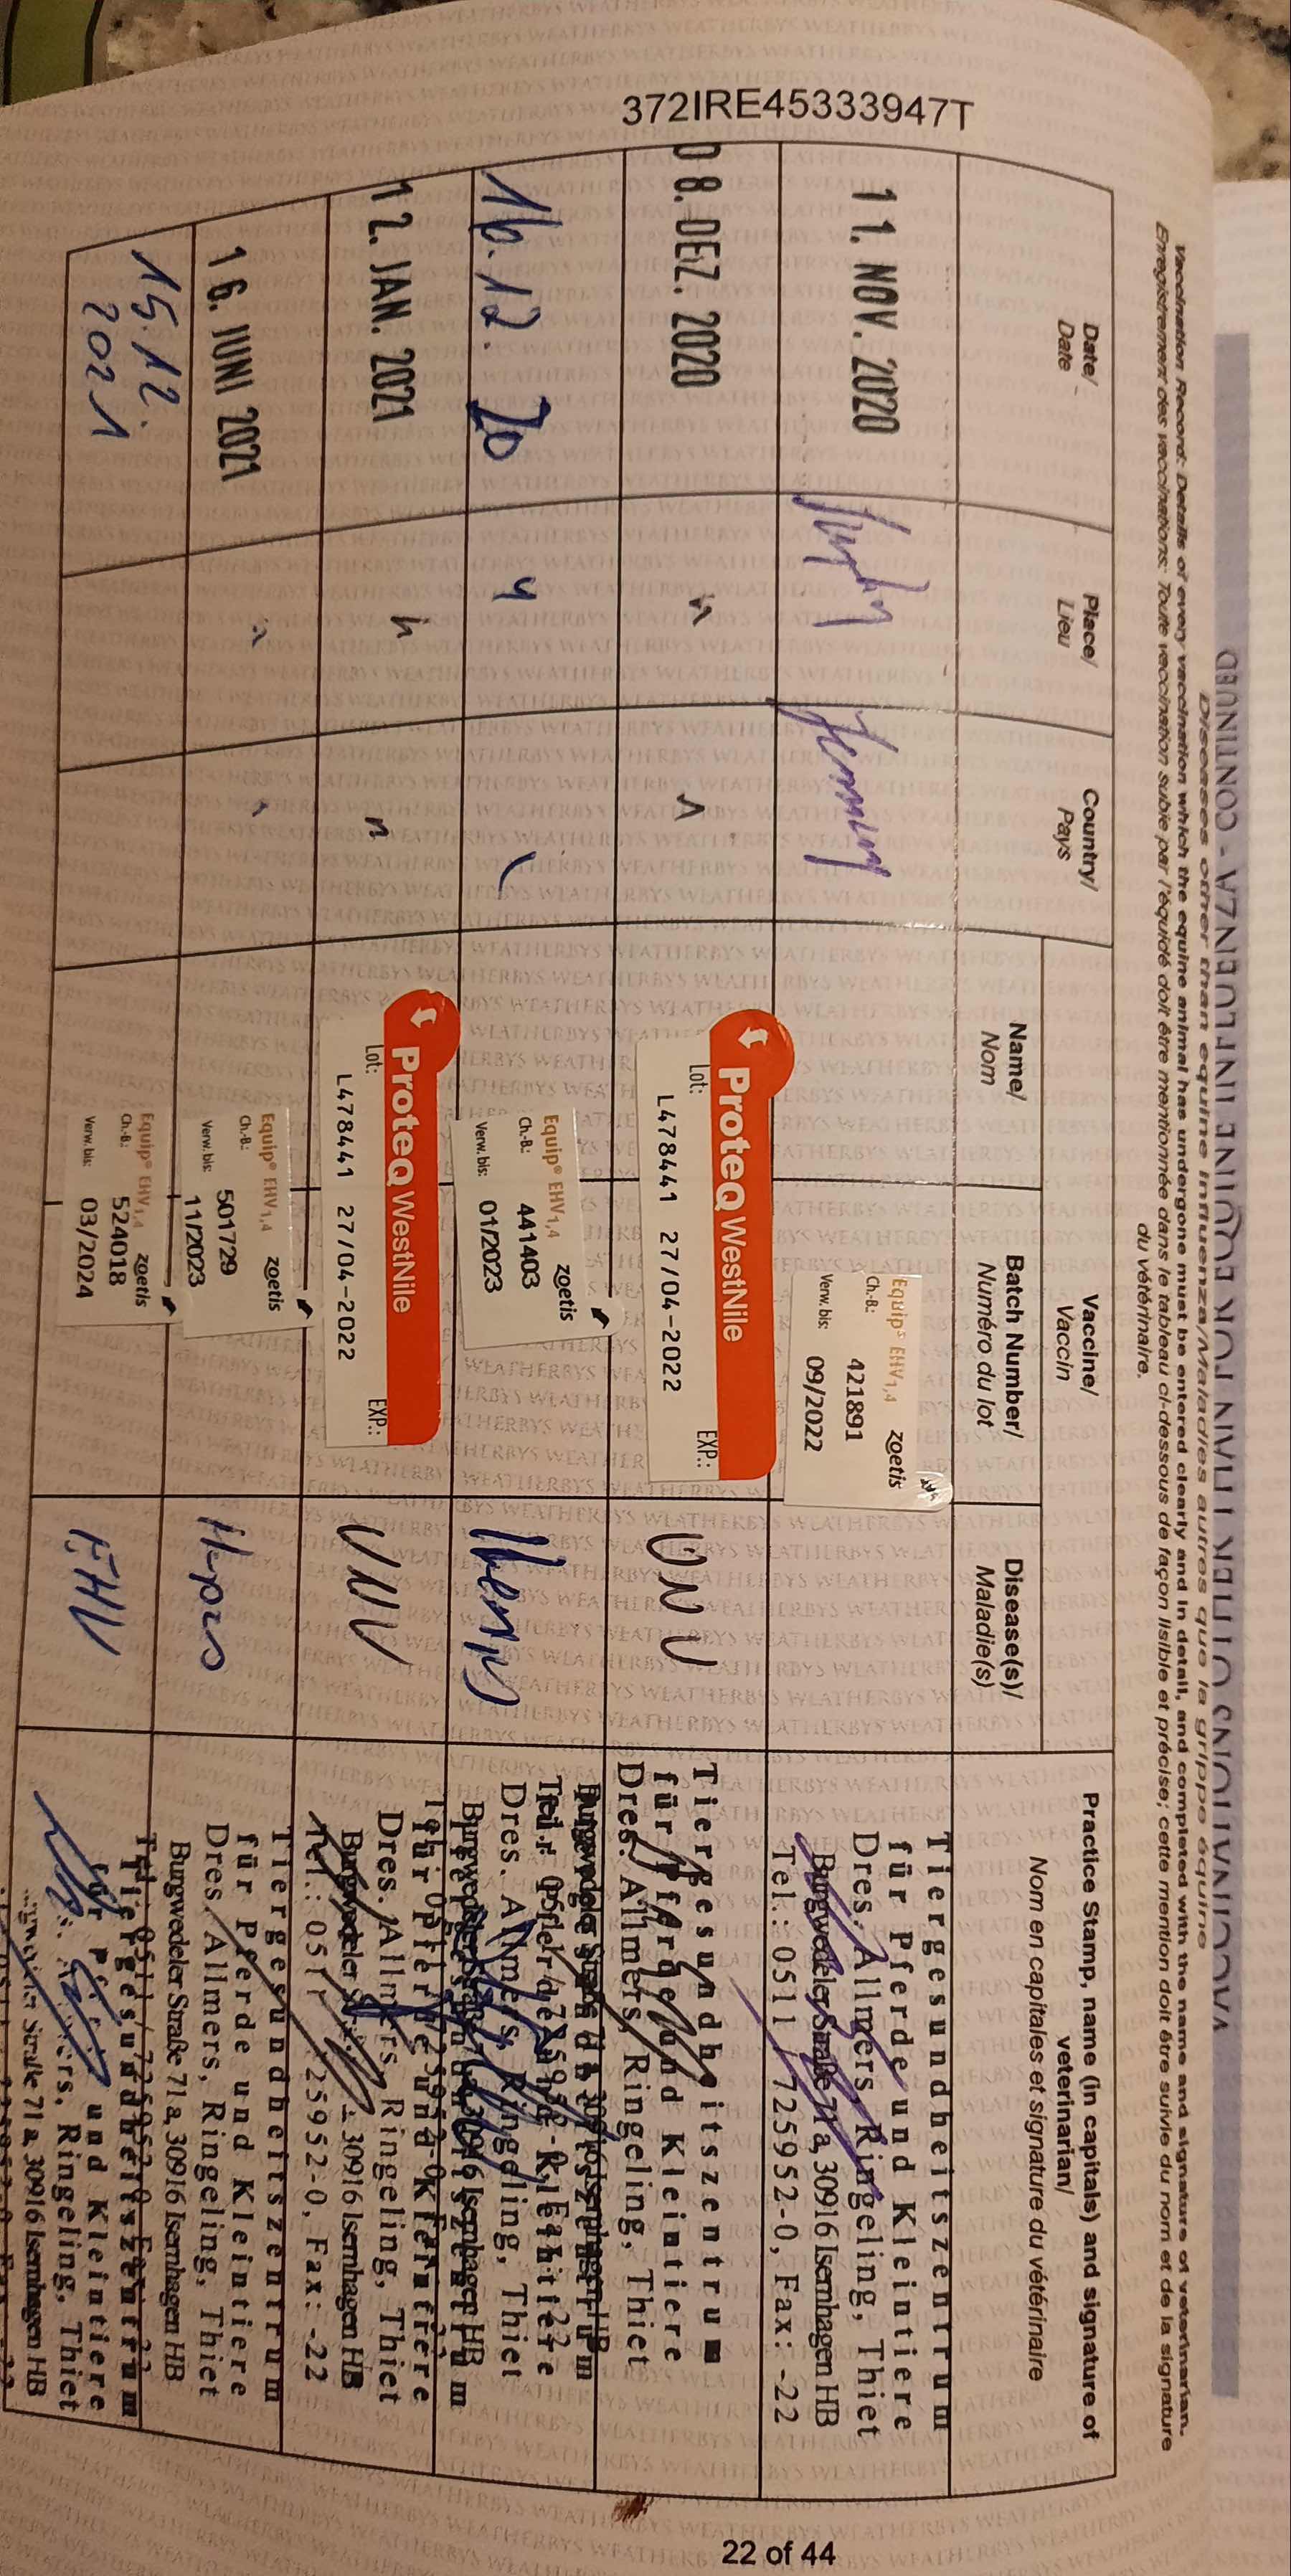 372IRE45333947T
VACCINATIONS OTHER THAN FOR EQUINE INFLUENZA - CONTINUED
Diseases other than equine influenza/Maladies autres que la grippe équine
Vaccination Record: Details of every vaccination which the equine animal has undergone must be entered clearly and in detail, and completed with the name and signature of veterinarian.
Enregistrement des vaccinations: Toute vaccination subie par l'équidé doit être mentionnée dans le tableau ci-dessous de façon lisible et précise; cette mention doit être suivie du nom et de la signature
du vétérinaire.
Date/
Date
Place/
Lieu
Country/
Pays
Vaccine/
Vaccin
Name/
Nom
Batch Number/
Numéro du lot
Disease(s)/
Maladie(s)
Practice Stamp, name (in capitals) and signature of
veterinarian/
Nom en capitales et signature du vétérinaire
11. NOV. 2020
Equip® EHV1,4 zoetis
Ch.-B.: 421891
Verw. bis: 09/2022
Tiergesundheitszentrum
für Pferde und Kleintiere
Dres. Allmers, Ringeling, Thiet
Burgwedeler Straße 71a, 30916 Isernhagen HB
Tel.: 0511 / 725952-0, Fax: -22
08. DEZ. 2020
ProteQ WestNile
Lot: EXP.:
L478441 27/04-2022
Tiergesundheitszentrum
für Pferde und Kleintiere
Dres. Allmers, Ringeling, Thiet
16.12.20
Equip® EHV1,4 zoetis
Ch.-B.: 441403
Verw. bis: 01/2023
Dres. Allmers, Ringeling, Thiet
12. JAN. 2021
ProteQ WestNile
Lot: EXP.:
L478441 27/04-2022
Dres. Allmers, Ringeling, Thiet
Burgwedeler 30916 Isernhagen HB
Tel.: 0511 25952-0, Fax: -22
16. JUNI 2021
Equip® EHV1,4 zoetis
Ch.-B.: 501729
Verw. bis: 11/2023
Tiergesundheitszentrum
für Pferde und Kleintiere
Dres. Allmers, Ringeling, Thiet
Burgwedeler Straße 71a, 30916 Isernhagen HB
15.12.
2021
Equip® EHV1,4 zoetis
Ch.-B.: 524018
Verw. bis: 03/2024
EHV
Tiergesundheitszentrum
für und Kleintiere
Ringeling, Thiet
Straße 71a, 30916 Isernhagen HB
22 of 44